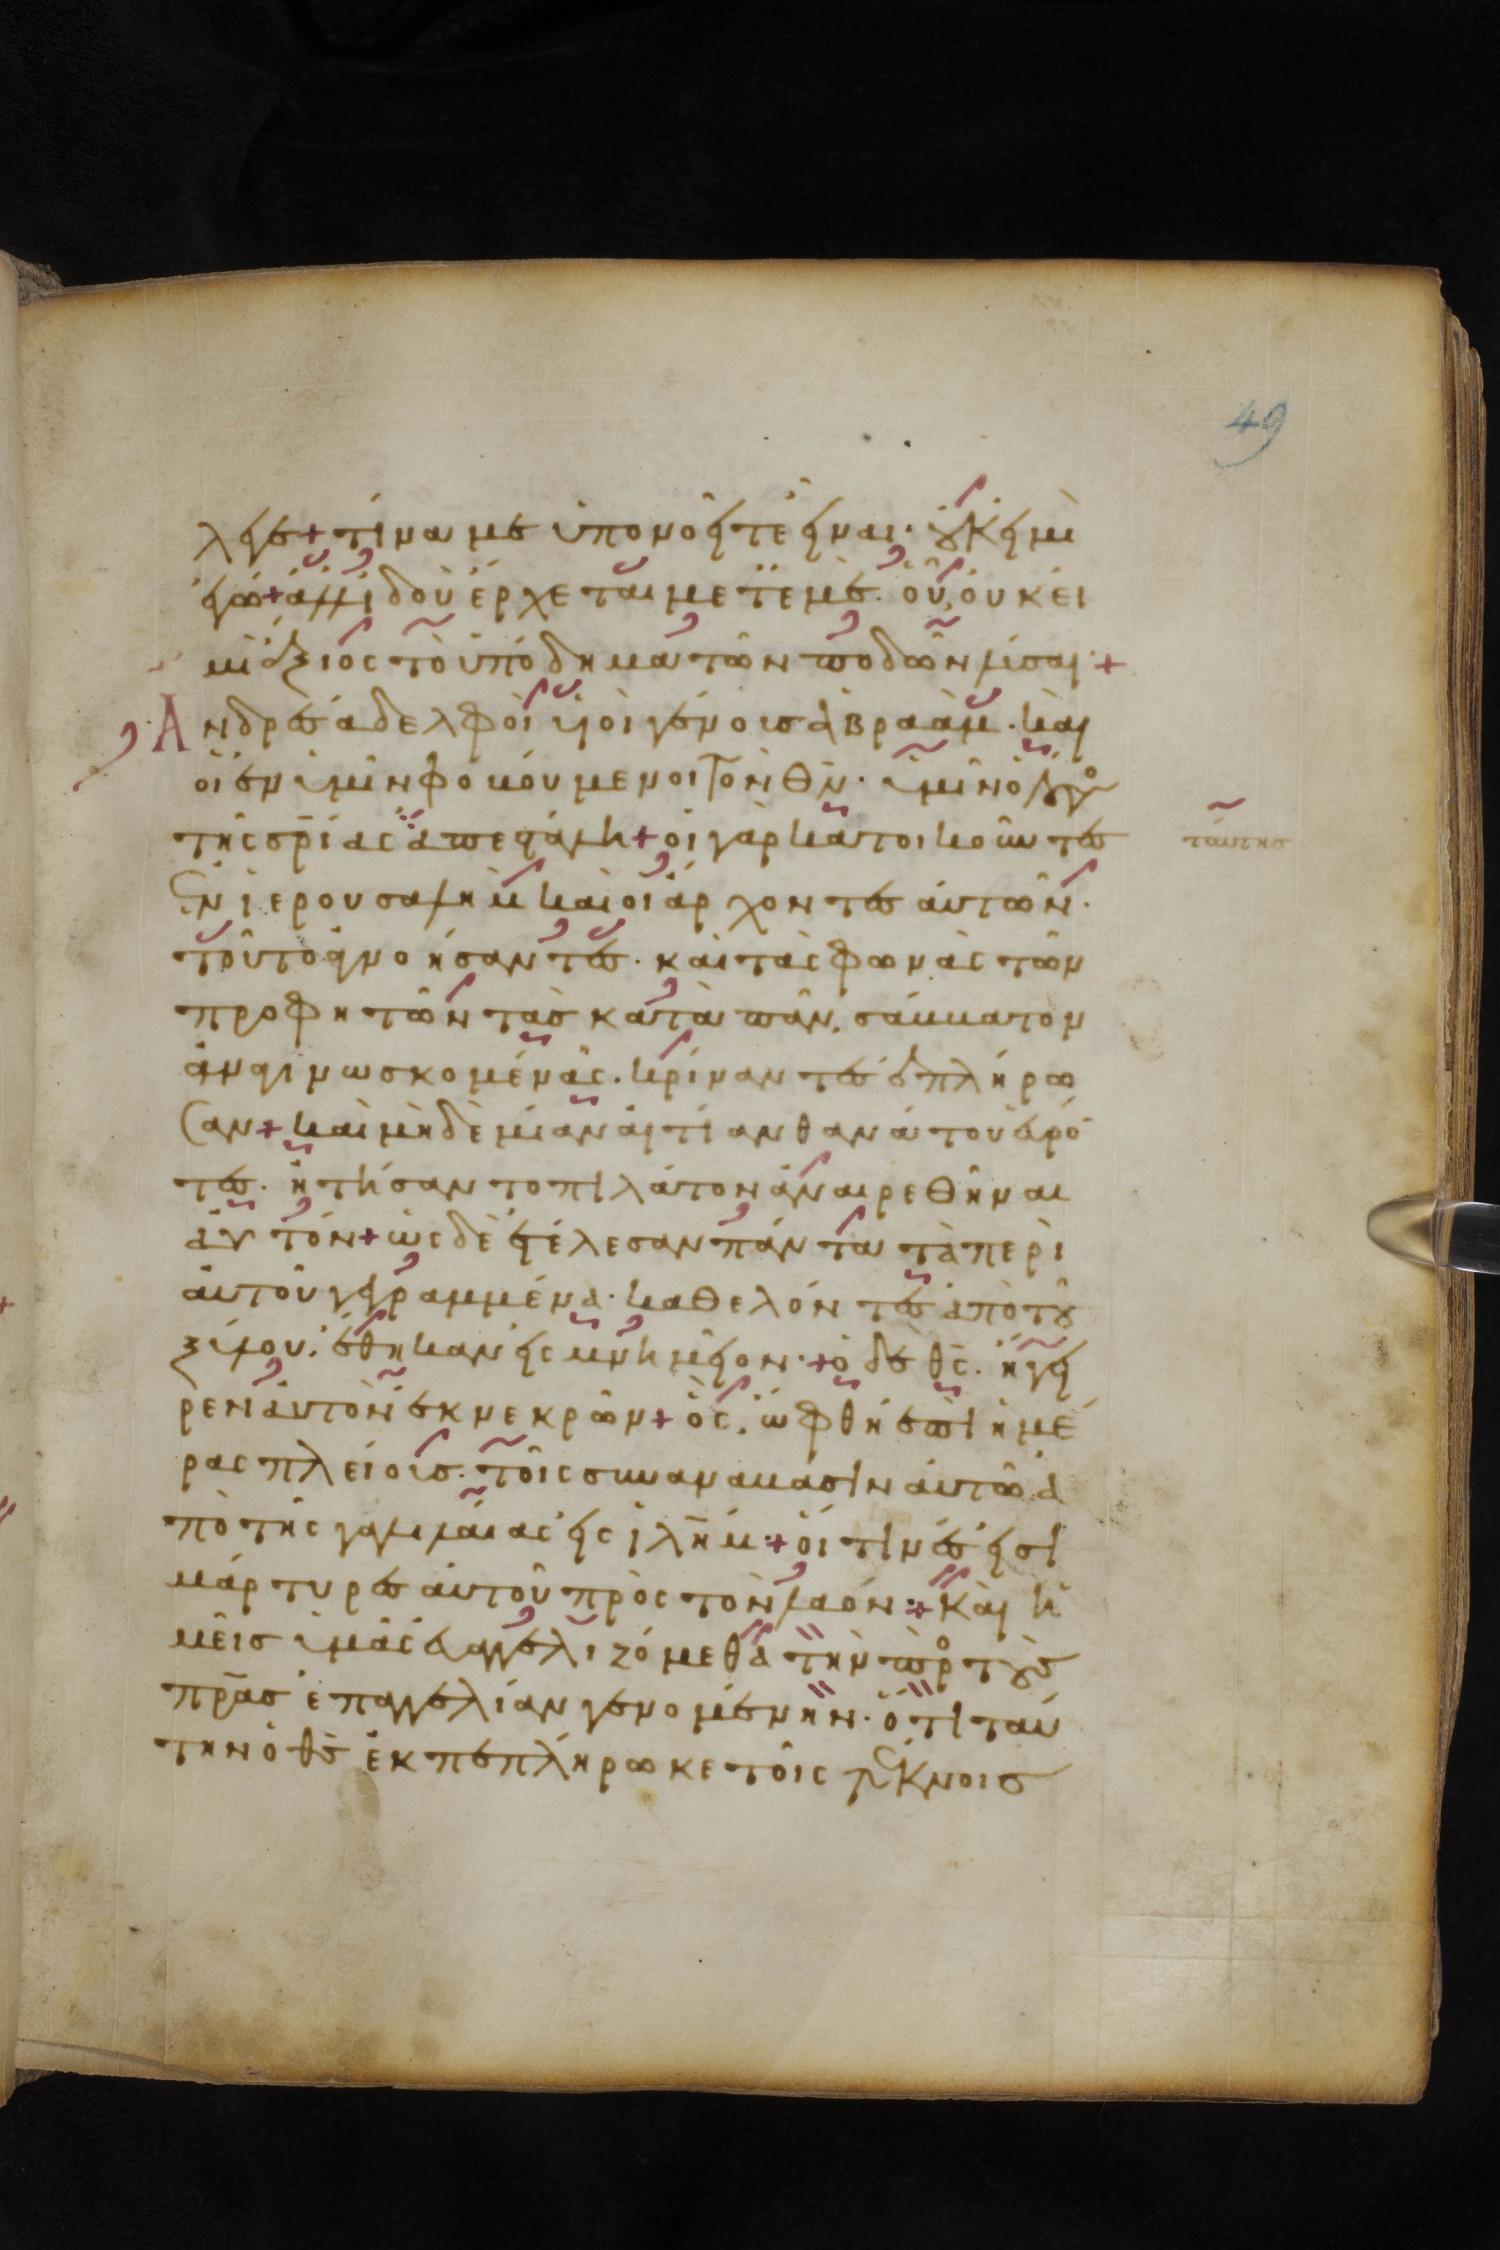 49
λης + τίνα με ὑπονοεῖτε εἶναι· οὐκ εἰμὶ
ἐγώ + ἀλλ ἰδοὺ ἔρχεται μετ ἐμὲ· οὗ οὐκ εἰ
μὶ ἄξιος τὸ ὑπόδημα τῶν ποδῶν λῦσαι· +
Ανδρες ἀδελφοὶ υἱοὶ γένους ἀβραάμ· καὶ
οἱ ἐν ὑμῖν φοβούμενοι τὸν θν· ὑμῖν ὁ λόγος
τῆς σρίας ἀπεστάλη + οἱ γὰρ κατοικοῦντες
ταύτης
ἐν ἱερουσαλὴμ καὶ οἱ ἄρχοντες αὐτῶν·
τοῦτο ἀγνοήσαντες· καὶ τὰς φωνὰς τῶν
προφητῶν τὰς κατὰ πᾶν σάββατον
ἀναγινωσκομένας· κρίναντες ἐπλήρω
σαν + καὶ μὴδὲμίαν αἰτίαν θανάτου εὑρό
τες· ἠτήσαντο πιλάτον ἀναιρεθῆναι
αὐτόν + ὡς δὲ ἐτέλεσαν πάντα τὰ περὶ
αὐτοῦ γεγραμμένα· καθελόντες ἀπὸ τοῦ
ξύλου· ἔθηκαν εἰς μνημεῖον· + ὁ δὲ θς· ἤγει
ρεν αὐτὸν ἐκ νεκρῶν + ὃς ὤφθη ἐπὶ ἡμέ
ρας πλείους· τοῖς συναναβᾶσιν αὐτῶ ἀ
πὸ τῆς γαλιλαίας εἰς ιλημ· + οἵτινές εἰσι
μάρτυρες αὐτοῦ πρὸς τὸν λαόν· + Καὶ ἡ
μεῖς ὑμᾶς εὐαγγελιζόμεθα τὴν πρὸς τοὺς
πρας ἐπαγγελίαν γενομένην· ὅτι ταύ
την ὁ θς ἐκπεπλήρωκε τοῖς τέκνοις